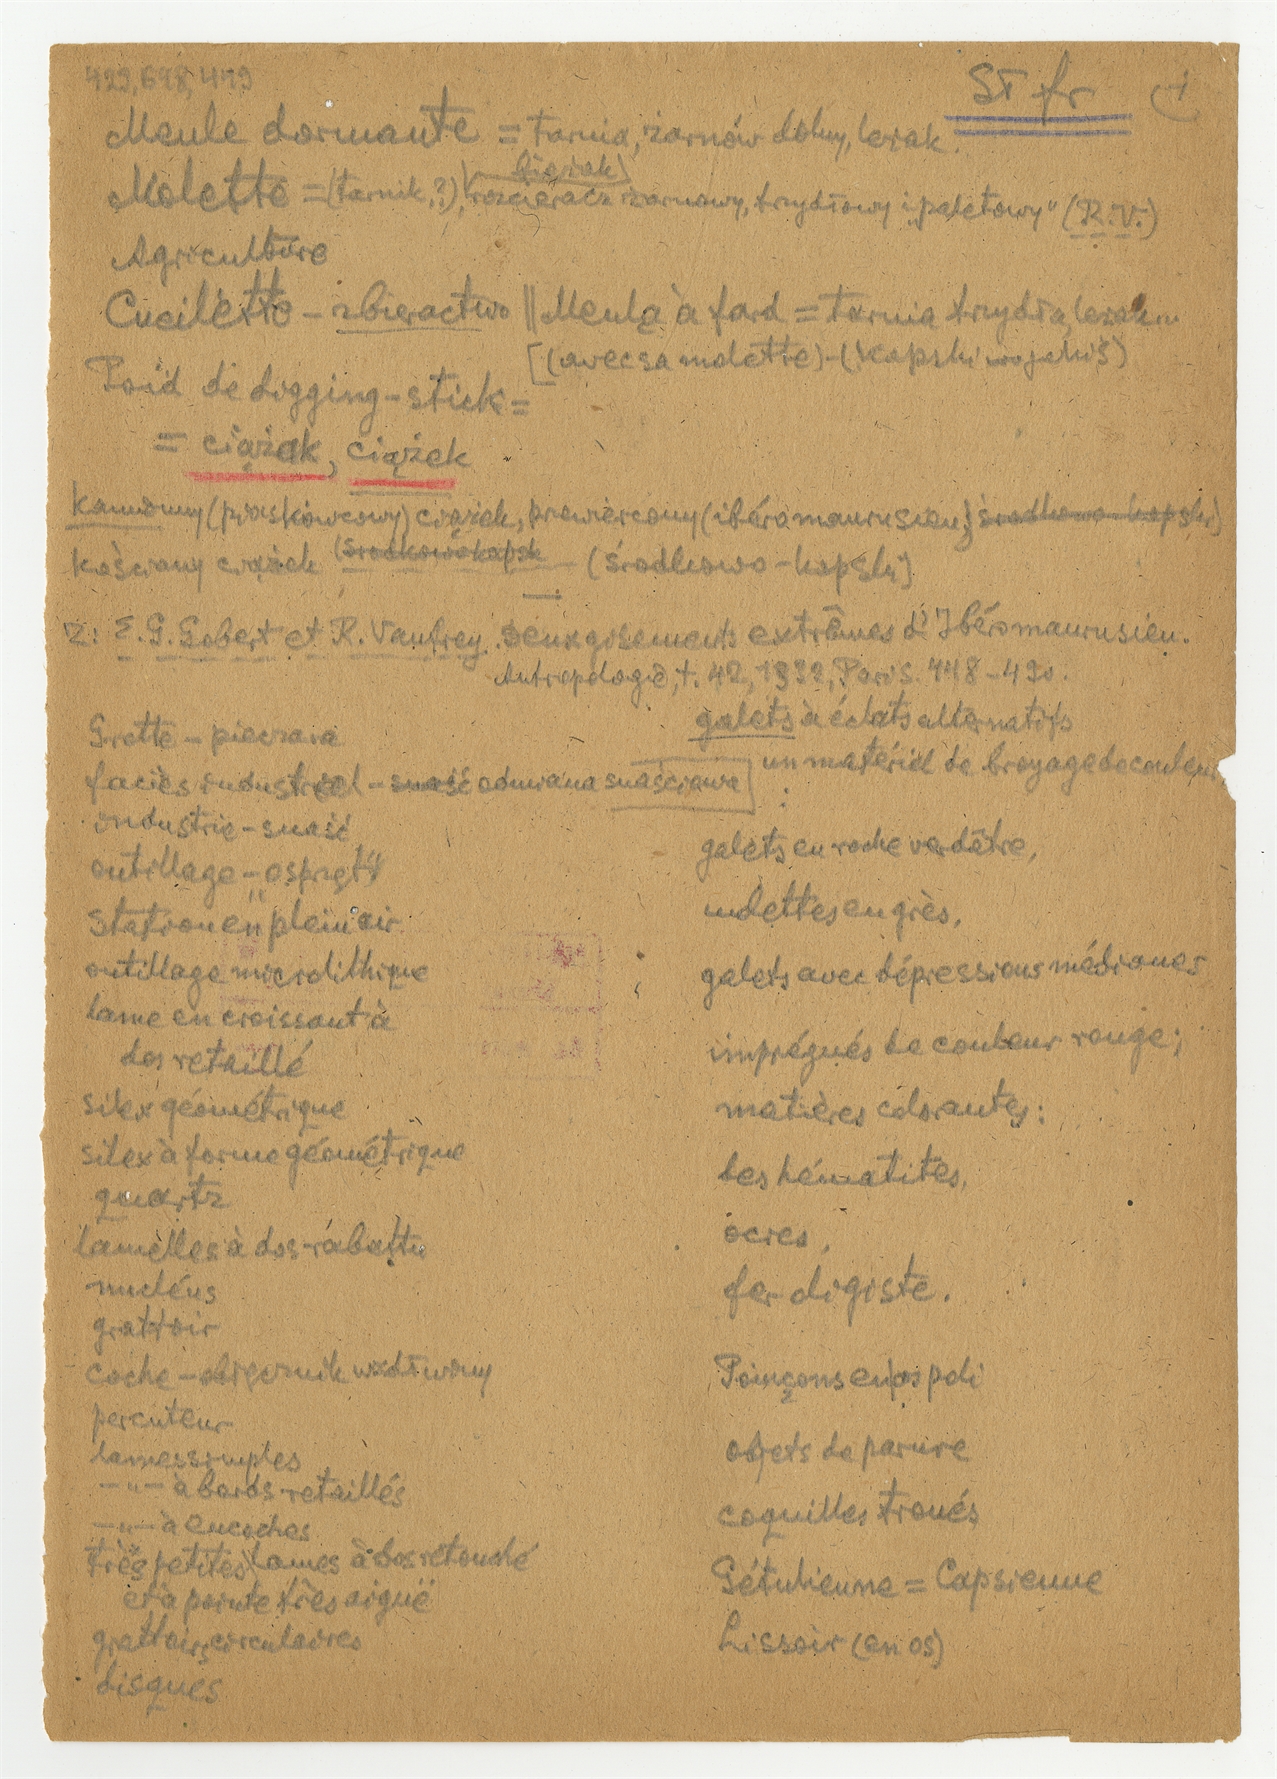 429, 648, 449
St fr
Meule dormante = tarnia, żarnów dolny, leżak.
bieżak
Molette = (tarnik, ?), rozcieracz żarnowy, krzydłowy i „paletowy" (R.V.)
Agriculture
Cueilette - zbieractwo || Meula à fard = tarnia krzydła, leżak
[(avec sa molette) - (kapski wojskiś)
Poid de digging-stick =
= ciążak, ciążek
kamienny (piaskowcowy) ciążek, przewiercony (ibéromaurusien) środkowo-kapski)
kościany ciążek (środkowokapsk (środkowo-kapski)
z: E. G. Gobert et R. Vaufrey. Deux gisements extrêmes d'Ibéromaurusien.
Antropologie, t. 42, 1932, Paris. 448-490.
Grotte - pieczara
faciès industriel - snaść odmiana snaściowa
industrie - snaść
outillage - osprzęty
station en plein air
outillage microlithique
lame en croissant à
dos retaillé
silex géométrique
silex à forme géométrique
quartz
lamelles à dos-rabattu
nucléus
grattoir
coche - obłęcznik wzdłużny
percuteur
lames simples
-"- à bords retaillés
-"- à encoches
très petites lames à dos retouché
et à pointe très aiguë
grattoirs circulaires
disques
galets à éclats alternatifs
un matériel de broyage de couleur
:
galets en roche verdâtre,
molettes en grès,
galets avec dépressions médianes
imprégnés de couleur rouge;
matières colorantes:
des hématites,
ocres,
fer oligiste.
Poinçons en os poli
objets de parure
coquilles troués
Gétulienne = Capsienne
Lissoir (en os)